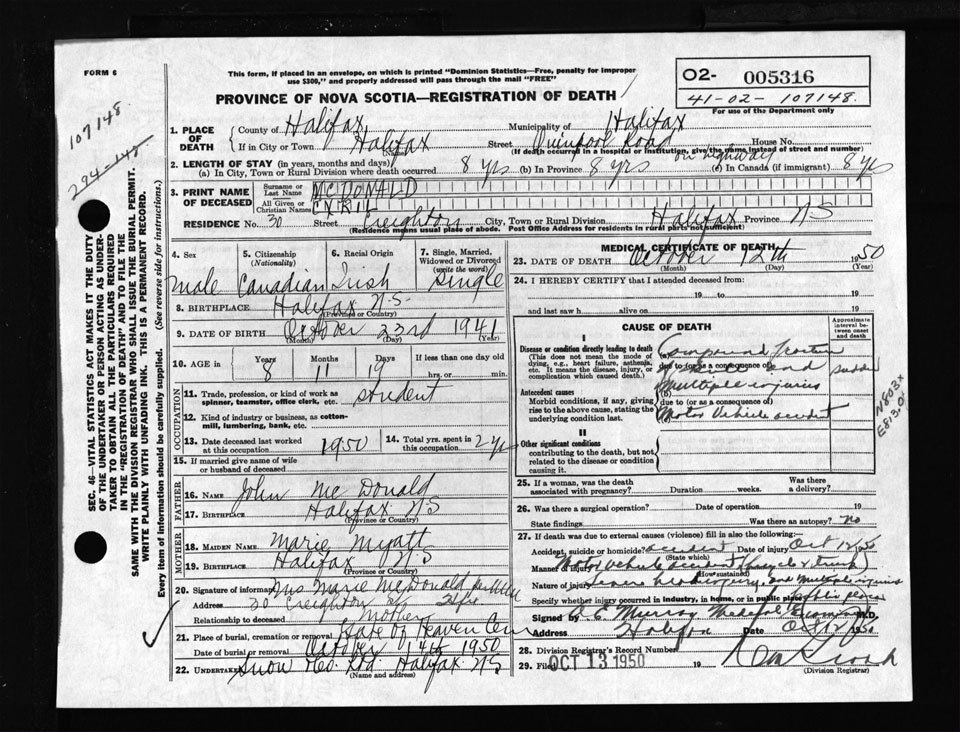 FORM 6
This form, if placed in an envelope, on which is printed "Dominion Statistics—Free, penalty for improper
use $300," and properly addressed will pass through the mail "FREE"
PROVINCE OF NOVA SCOTIA—REGISTRATION OF DEATH
O2- 005316
41-02- 107148.
For use of the Department only
107148
294-148
SEC. 46—VITAL STATISTICS ACT MAKES IT THE DUTY
OF THE UNDERTAKER OR PERSON ACTING AS UNDER-
TAKER TO OBTAIN ALL THE PARTICULARS REQUIRED
IN THE "REGISTRATION OF DEATH" AND TO FILE THE
SAME WITH THE DIVISION REGISTRAR WHO SHALL ISSUE THE BURIAL PERMIT.
WRITE PLAINLY WITH UNFADING INK. THIS IS A PERMANENT RECORD.
Every item of information should be carefully supplied. (See reverse side for instructions.)
1. PLACE OF DEATH
County of Halifax Municipality of Halifax
If in City or Town Halifax Street Quinpool Road House No.
(If death occurred in a hospital or institution, give the name instead of street and number)
on highway
2. LENGTH OF STAY (in years, months and days)
(a) In City, Town or Rural Division where death occurred 8 yrs (b) In Province 8 yrs (c) In Canada (if immigrant) 8 yrs
3. PRINT NAME OF DECEASED
Surname or Last Name MCDONALD
All Given or Christian Names
RESIDENCE No. 30 Street Creighton City, Town or Rural Division Halifax Province NS
(Residence means usual place of abode. Post Office Address for residents in rural parts not sufficient)
4. Sex 5. Citizenship (Nationality) 6. Racial Origin 7. Single, Married, Widowed or Divorced (write the word)
male Canadian Irish Single
8. BIRTHPLACE Halifax N.S.
(Province or Country)
9. DATE OF BIRTH October 23rd 1941
(Month) (Day) (Year)
10. AGE in Years Months Days If less than one day old
8 11 19 hrs. or min.
OCCUPATION
11. Trade, profession, or kind of work as spinner, teamster, office clerk, etc. student
12. Kind of industry or business, as cotton-mill, lumbering, bank, etc.
13. Date deceased last worked at this occupation 1950 14. Total yrs. spent in this occupation 2 yrs
15. If married give name of wife or husband of deceased
FATHER
16. NAME John McDonald
17. BIRTHPLACE Halifax NS
(Province or Country)
MOTHER
18. MAIDEN NAME Marie Myatt
19. BIRTHPLACE Halifax N.S
(Province or Country)
20. Signature of informant Mrs Marie McDonald
Address 30 Creighton St Hfx
Relationship to deceased Mother
21. Place of burial, cremation or removal Gate Of Heaven Cem
Date of burial or removal October 14th 1950
22. UNDERTAKER Snow & Co. Ltd. Halifax N.S.
(Name and address)
MEDICAL CERTIFICATE OF DEATH
23. DATE OF DEATH October 12th 1950
(Month) (Day) (Year)
24. I HEREBY CERTIFY that I attended deceased from:
19 to 19
and last saw h alive on 19
CAUSE OF DEATH
Approximate interval between onset and death
I
Disease or condition directly leading to death
(This does not mean the mode of dying, e.g., heart failure, asthenia, etc. It means the disease, injury, or complication which caused death.)
(a) Compound
due to (or as a consequence of)
Antecedent causes
Morbid conditions, if any, giving rise to the above cause, stating the underlying condition last.
(b) Multiple injuries
due to (or as a consequence of)
(c) Motor Vehicle accident
II
Other significant conditions
contributing to the death, but not related to the disease or condition causing it.
N803x
25. If a woman, was the death associated with pregnancy? Duration weeks. Was there a delivery?
26. Was there a surgical operation? Date of operation 19
State findings Was there an autopsy? No
27. If death was due to external causes (violence) fill in also the following:
Accident, suicide or homicide? accident Date of injury Oct 12 1950
(State which)
Manner of injury Motor Vehicle accident (bicycle & truck)
(How sustained)
Nature of injury Severe head injury, and multiple injuries
Specify whether injury occurred in industry, in home, or in public place Public place
Signed by Murray Medical Examiner M.D.
Address Halifax Date 1950
28. Division Registrar's Record Number
29. Filed OCT 13 1950 19
(Division Registrar)